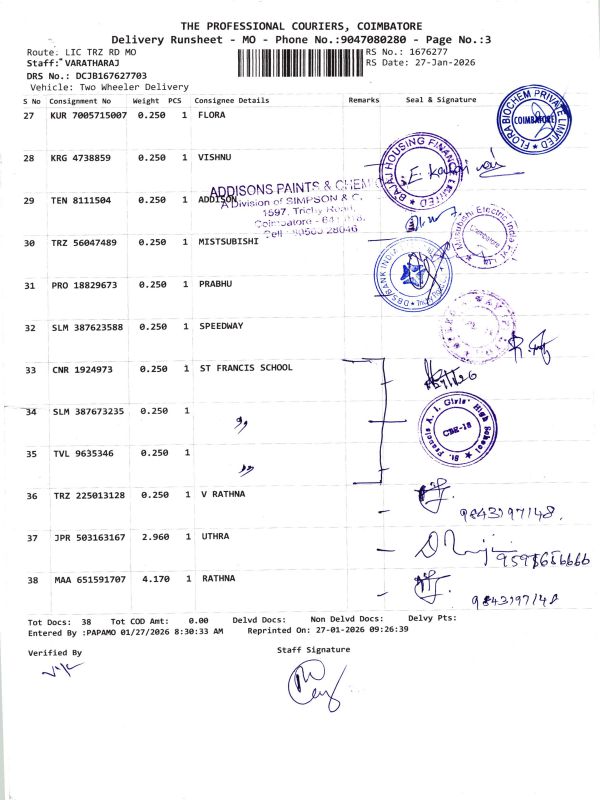 THE PROFESSIONAL COURIERS, COIMBATORE
Delivery Runsheet - MO - Phone No.:9047080280 - Page No.:3
Route: LIC TRZ RD MO RS No.: 1676277
Staff: VARATHARAJ RS Date: 27-Jan-2026
DRS No.: DCJB167627703
Vehicle: Two Wheeler Delivery
S No Consignment No Weight PCS Consignee Details Remarks Seal & Signature
27 KUR 7005715007 0.250 1 FLORA
FLORA BIOCHEM PRIVATE LIMITED
COIMBATORE
28 KRG 4738859 0.250 1 VISHNU
BAJAJ HOUSING FINANCE LIMITED
29 TEN 8111504 0.250 1 ADDISON
ADDISONS PAINTS & CHEM
A Division of SIMPSON & C
1597, Trichy Road,
Coimbatore - 641
30 TRZ 56047489 0.250 1 MISTSUBISHI
Mitsubishi Electric India Pvt
Coimbatore
31 PRO 18829673 0.250 1 PRABHU
DBS BANK INDIA
32 SLM 387623588 0.250 1 SPEEDWAY
33 CNR 1924973 0.250 1 ST FRANCIS SCHOOL
34 SLM 387673235 0.250 1 "
St. Francis A. I. Girls' High School
CBE-18
35 TVL 9635346 0.250 1 "
36 TRZ 225013128 0.250 1 V RATHNA
9843197148.
37 JPR 503163167 2.960 1 UTHRA
38 MAA 651591707 4.170 1 RATHNA
9843197148
Tot Docs: 38 Tot COD Amt: 0.00 Delvd Docs: Non Delvd Docs: Delvy Pts:
Entered By :PAPAMO 01/27/2026 8:30:33 AM Reprinted On: 27-01-2026 09:26:39
Verified By Staff Signature